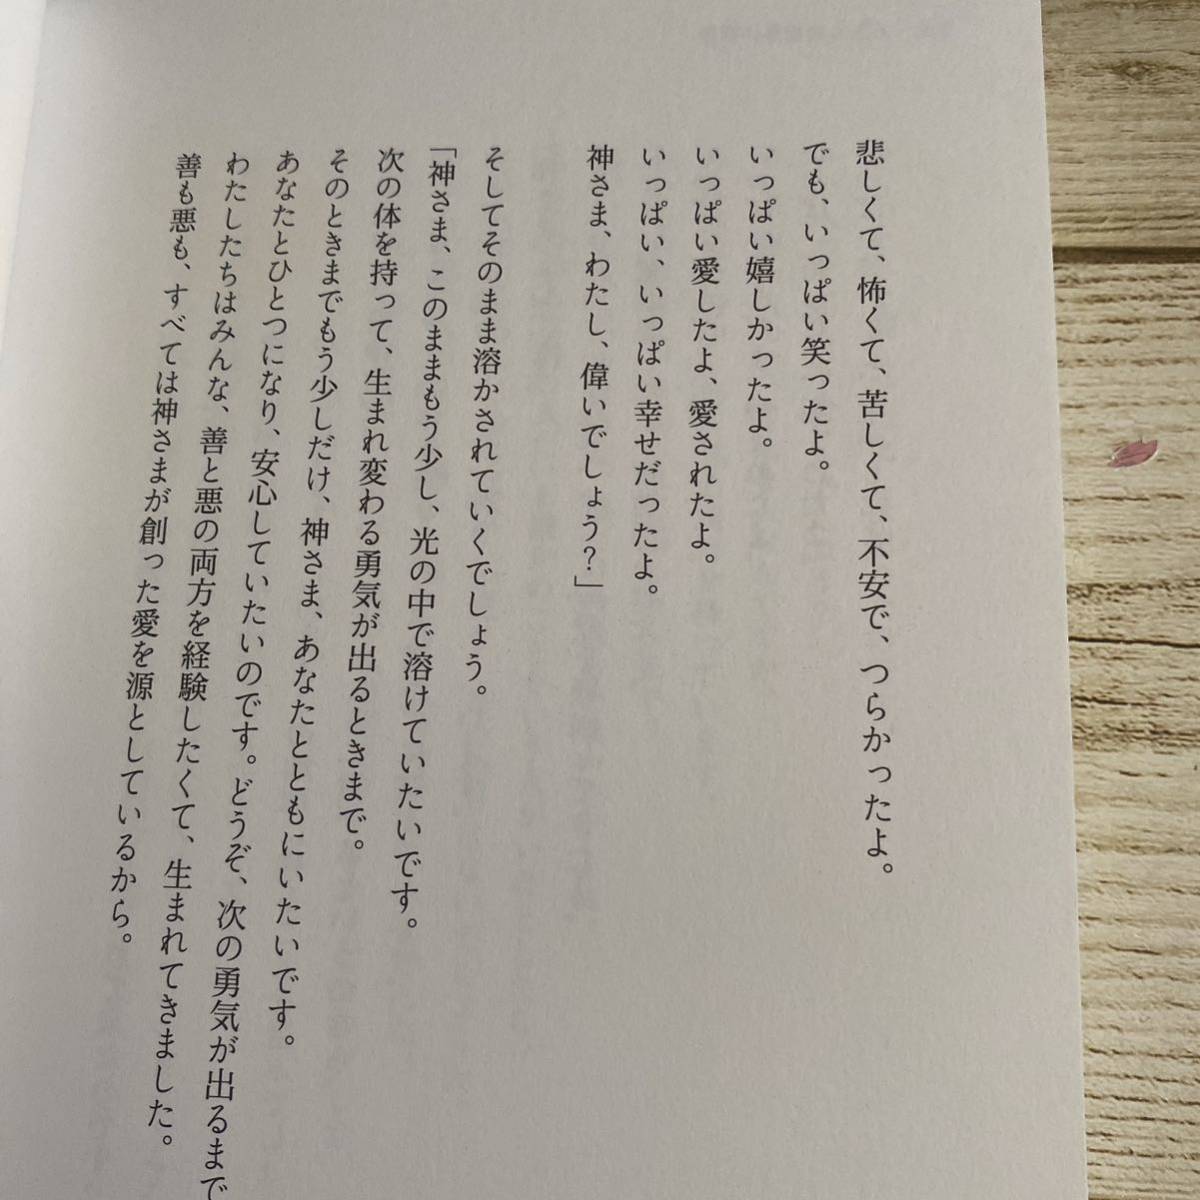 悲しくて、怖くて、苦しくて、不安で、つらかったよ。
でも、いっぱい笑ったよ。
いっぱい嬉しかったよ。
いっぱい愛したよ、愛されたよ。
いっぱい、いっぱい幸せだったよ。
神さま、わたし、偉いでしょう?」
そしてそのまま溶かされていくでしょう。
「神さま、このままもう少し、光の中で溶けていたいです。
次の体を持って、生まれ変わる勇気が出るときまで。
そのときまでもう少しだけ、神さま、あなたとともにいたいです。
あなたとひとつになり、安心していたいのです。どうぞ、次の勇気が出るまで
わたしたちはみんな、善と悪の両方を経験したくて、生まれてきました。
善も悪も、すべては神さまが創った愛を源としているから。